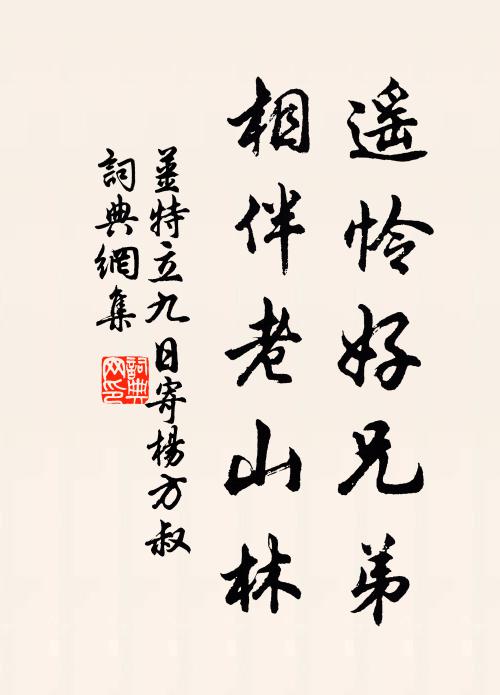 遥怜好兄弟
相伴老山林
姜特立九日寄楊方叔
詞典網集
詞典網印